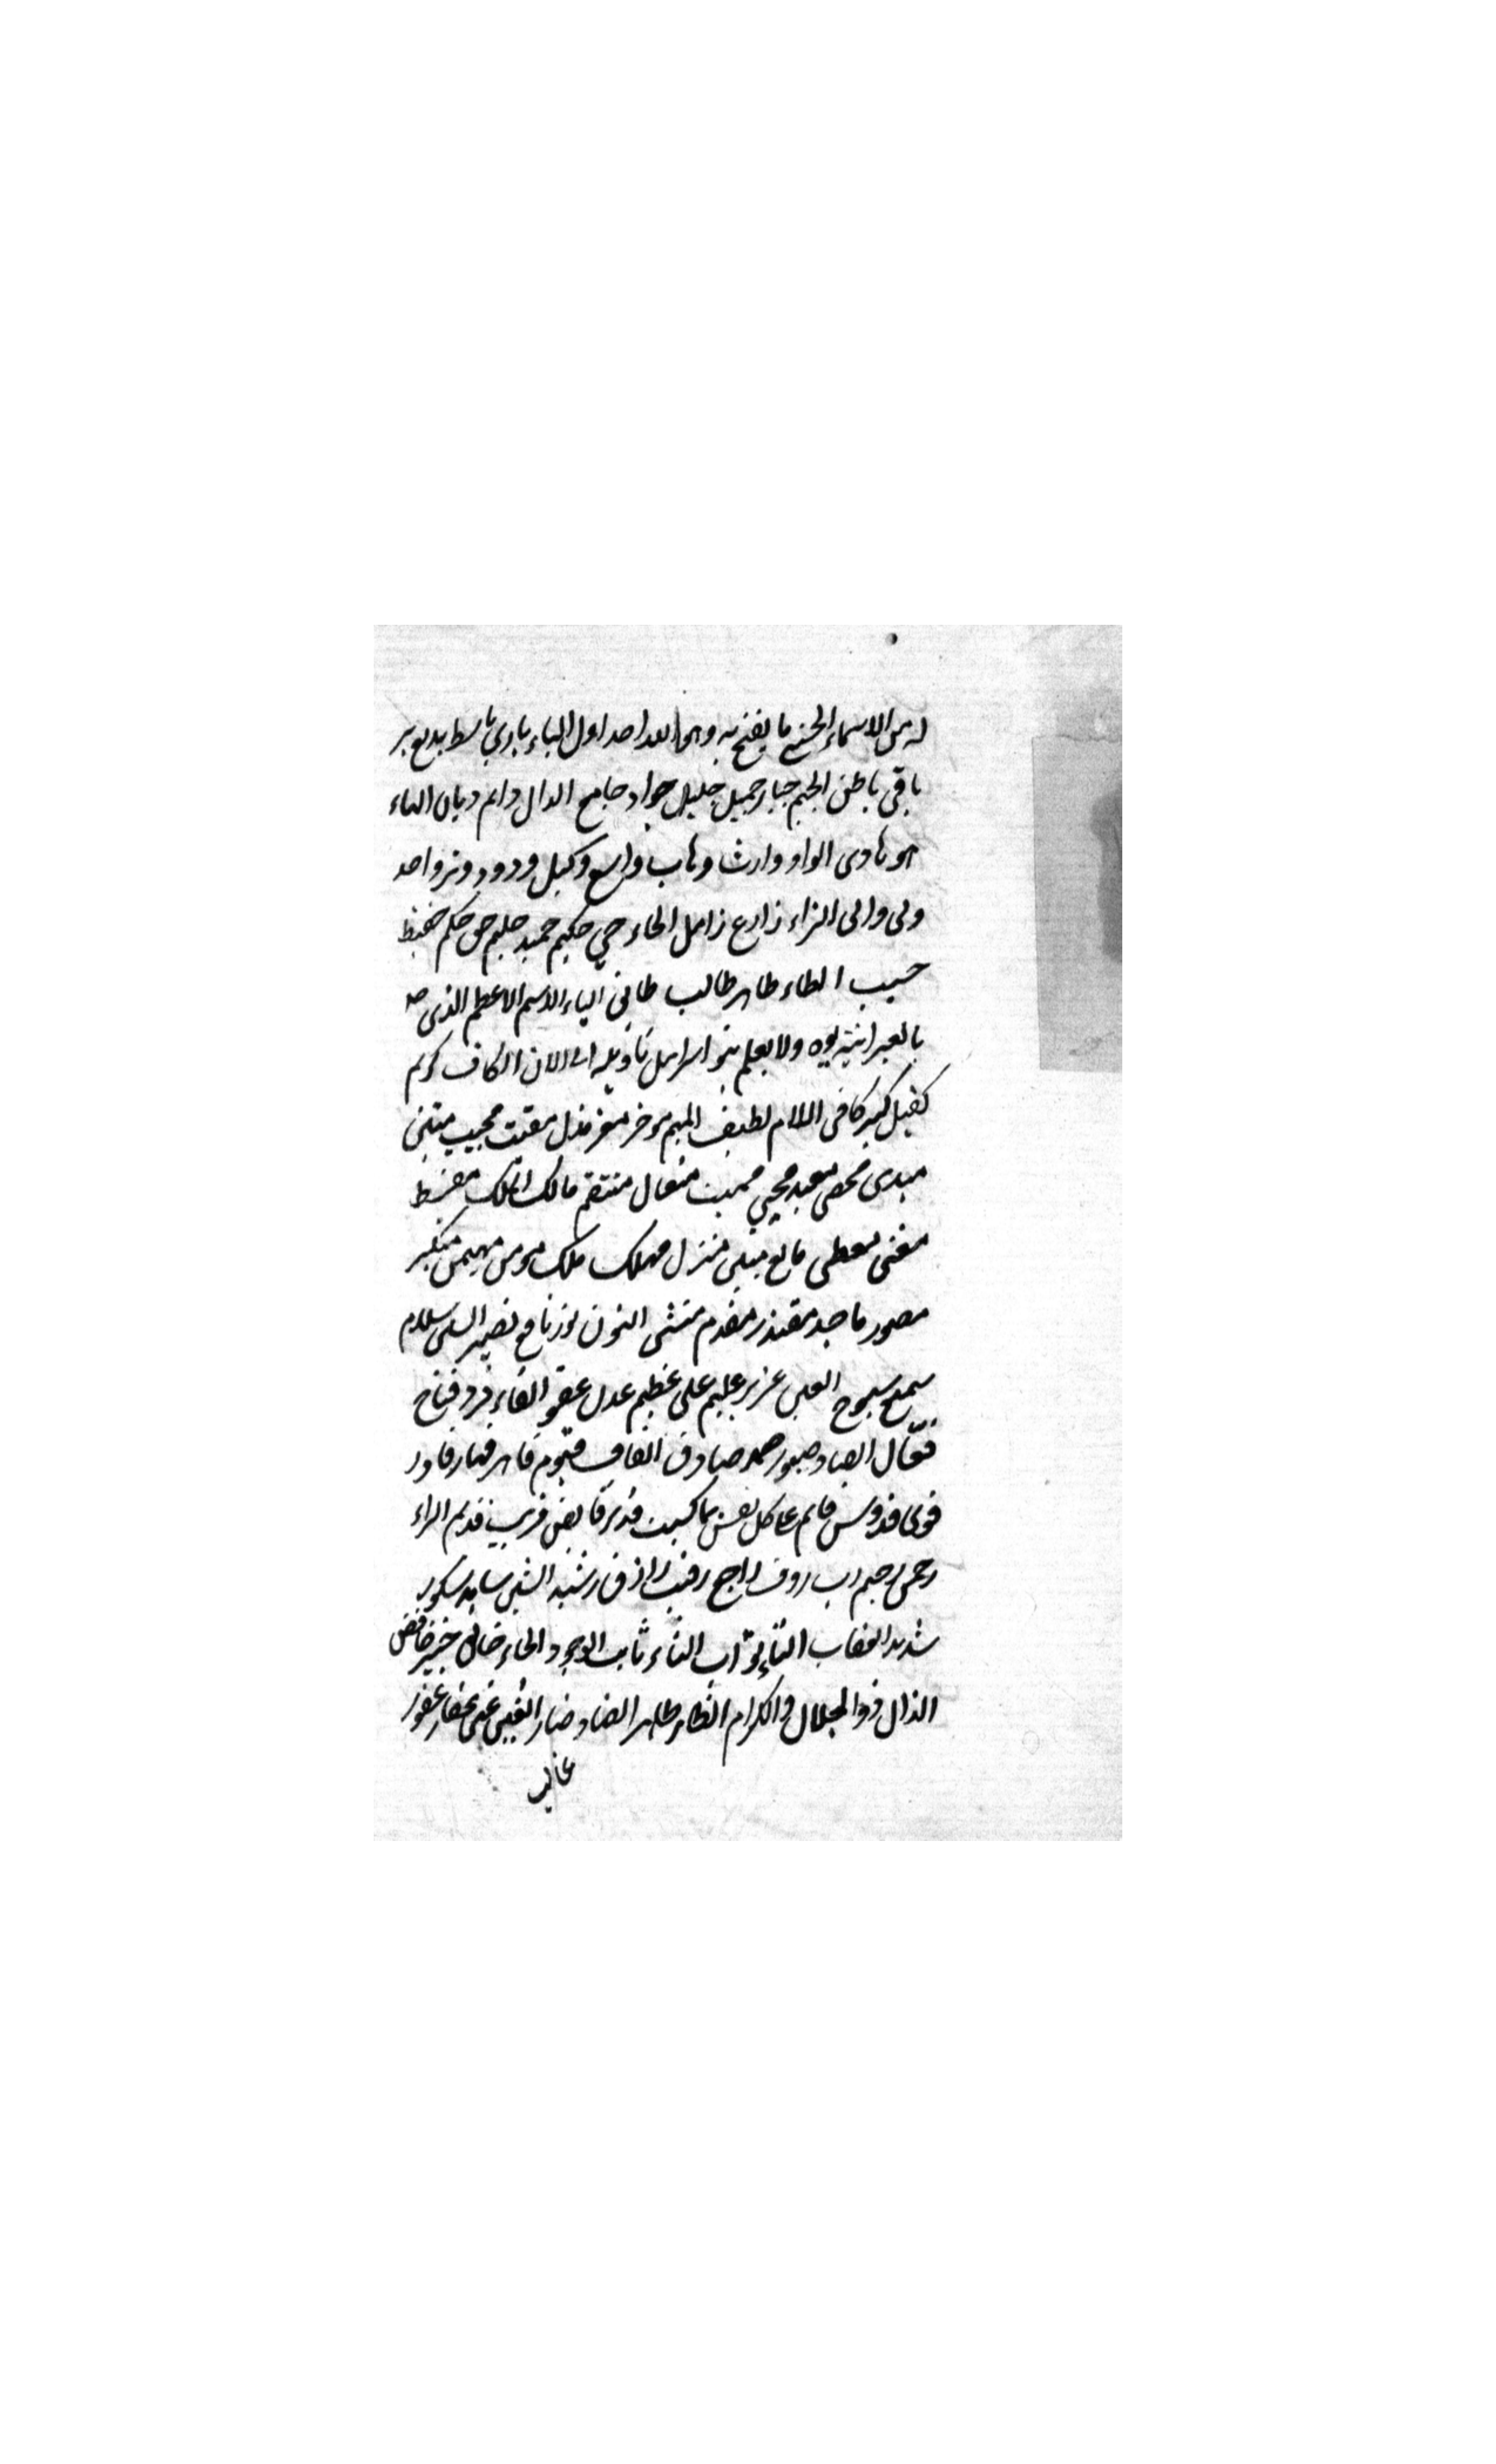 له من الاسماء الحسنى ما يفتح به وهو الله احد اول الباء باري باسط بديع بر
باقي باطن الجيم جبار جميل جليل جواد جامع الدال دايم ديان الهاء
هو هادى الواو وارث وهاب واسع وكيل ودود وتر واحد
ولى والى الزاء زارع زامل الحاء حي حكيم حميد حليم حق حكم حفيظ
حسيب الطاء طاهر طالب طافى الياء الاسم الاعظم الذى هو
بالعبرانية يوه ولا يعلم بنو اسرايل تاويله الى الان الكاف كريم
كفيل كبير كافى اللام لطيف الميم موخر معز مذل مقيت مجيب متين
مبدى محصى معيد محيي مميت متعال منتقم مالك الملك مقسط
مغنى معطى مانع مبلى منزل مهلك ملك مومن مهيمن متكبر
مصور ماجد مقتدر مقدم منشى النون نور نافع نصير السين سلام
سميع سبوح العين عزيز عليم على عظيم عدل عفو الفاء فرد فتاح
فعّال الصاد صبور صمد صادق القاف قيوم قاهر قهار قادر
قوى قدوس قايم على كل نفس بما كسبت قدير قابض قريب قديم الراء
رحمن رحيم رب روف راجح رقيب رازق رشيد الشين شاهد شكور
شديد العقاب التاء تواب الثاء ثابت الوجود الخاء خالق خبير خافض
الذال ذو الجلال والاكرام الظاء ظاهر الضاد ضار الغين غنى غفار غفور
غالب